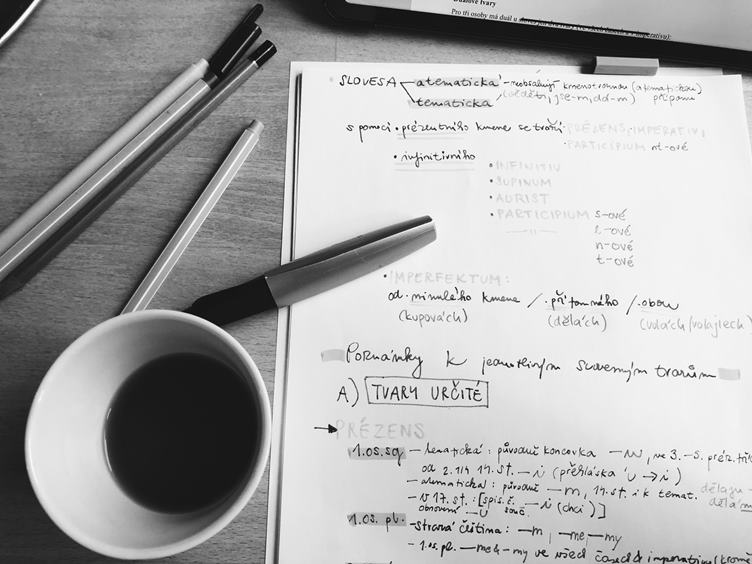 Duálové tvary
Pro tři osoby má duál u
SLOVESA atematická - neobsahují kmenotvornou (atematickou)
tematická (věděti, jse-m, dá-m) příponu
s pomocí • prézentního kmene se tvoří PRÉZENS, IMPERATIV,
• PARTICIPIUM nt-ové
• infinitivního
• INFINITIV
• SUPINUM
• AORIST
• PARTICIPIUM s-ové
—"— l-ové
n-ové
t-ové
• IMPERFEKTUM:
od minulého kmene / přítomného / obou
(kupovách) (dělách) (volách/volajiech)
Poznámky k jednotlivým slovesným tvarům
A) TVARY URČITÉ
→ PRÉZENS
1.os.sg. - tematická: původně koncovka -u, ve 3. -5. préz. tř.
od 2. pol. 14. st. -i (přehláska 'u → i)
- atematická: původně -m, 14. st. i k temat.
- v 17. st.: [spis. č. -i (chci)]
obnovení -u souč.
1.os. pl. - stará čeština: -m, -me -my
- 1.os.pl. -me & -my ve všech časech & imperativu (kromě